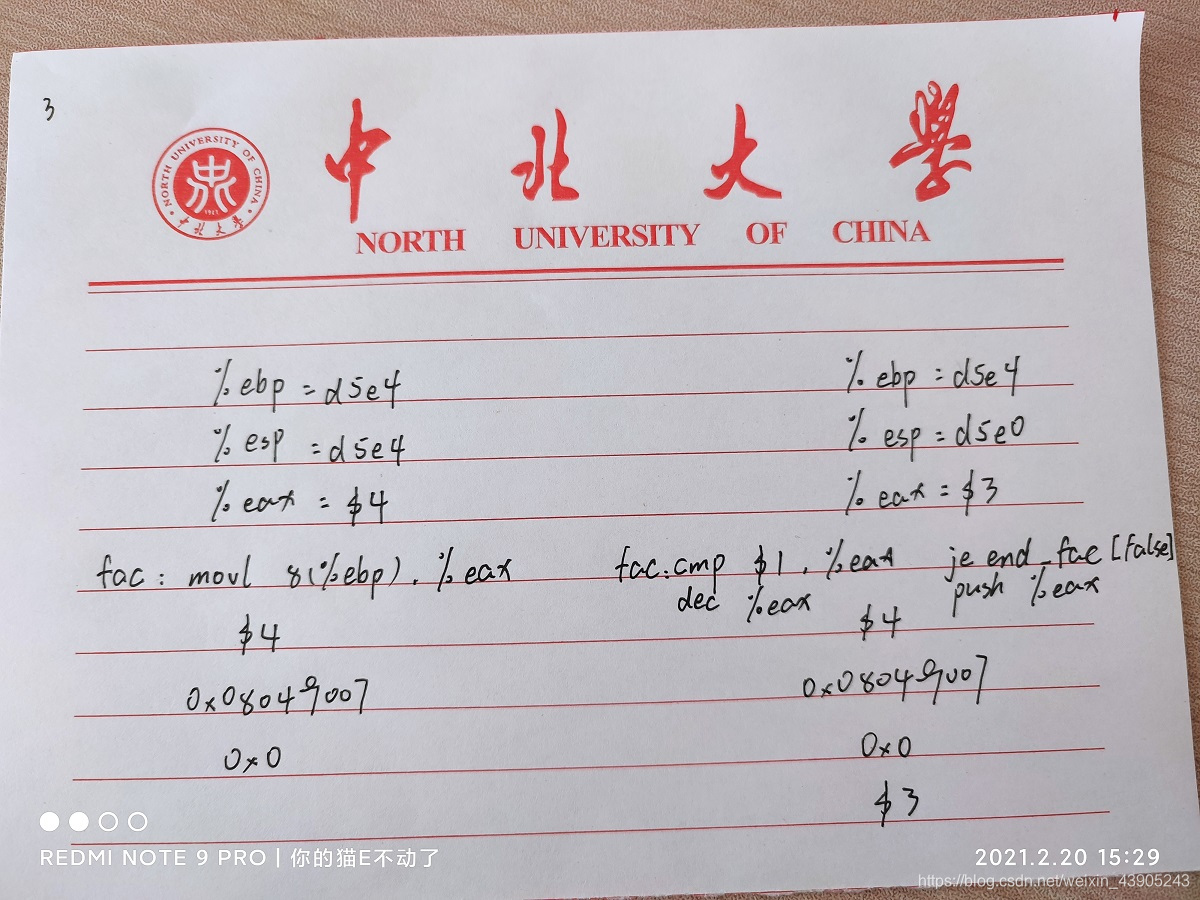 3
NORTH UNIVERSITY OF CHINA
1941
中北大学
中北大学
NORTH UNIVERSITY OF CHINA
%ebp = d5e4
%esp = d5e4
%eax = $4
fac: movl 8(%ebp), %eax
$4
0x08049007
0x0
%ebp = d5e4
%esp = d5e0
%eax = $3
fac: cmp $1, %eax je end_fac [False]
dec %eax push %eax
$4
0x08049007
0x0
$3
REDMI NOTE 9 PRO | 你的猫E不动了
2021.2.20 15:29
https://blog.csdn.net/weixin_43905243